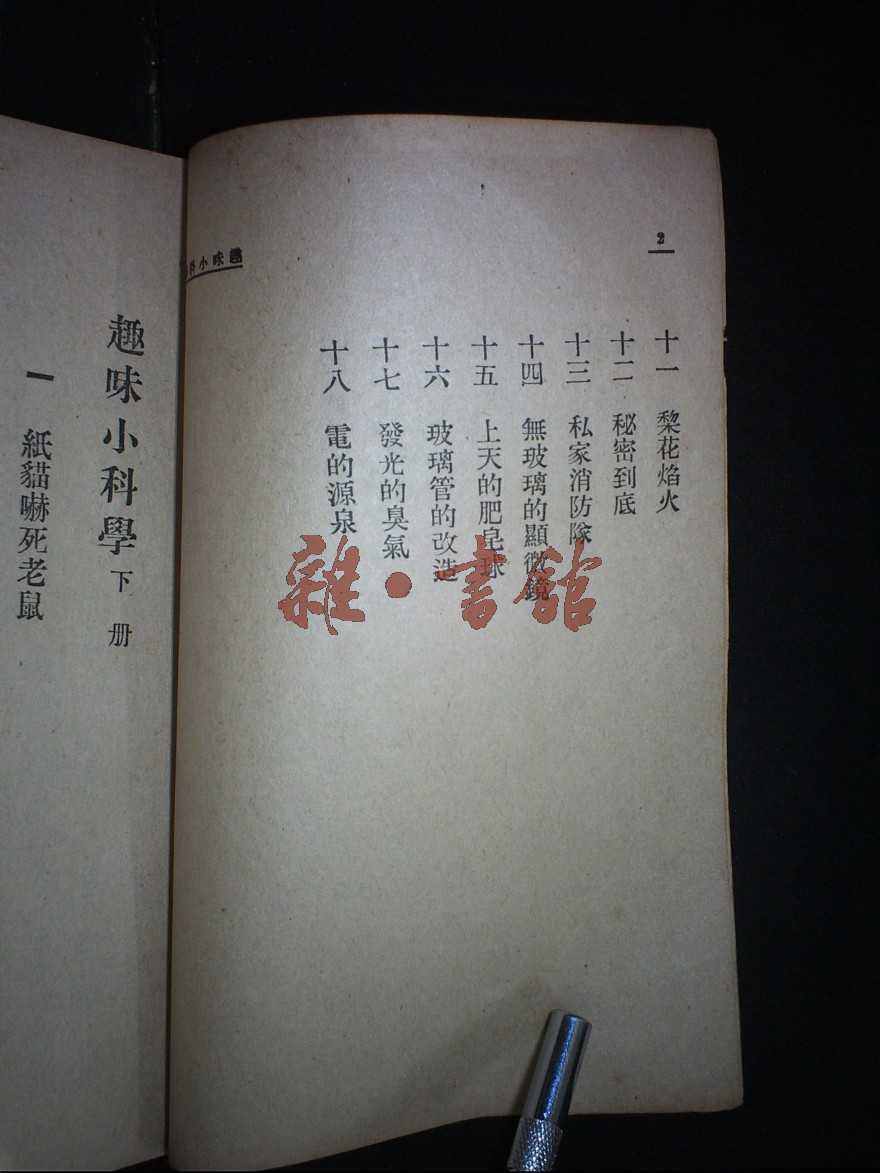 2
趣味小科
十一 棃花焰火
十二 秘密到底
十三 私家消防隊
十四 無玻璃的顯微鏡
十五 上天的肥皂球
十六 玻璃管的改造
十七 發光的臭氣
十八 電的源泉
趣味小科學 下册
一 紙貓嚇死老鼠
雜·書館